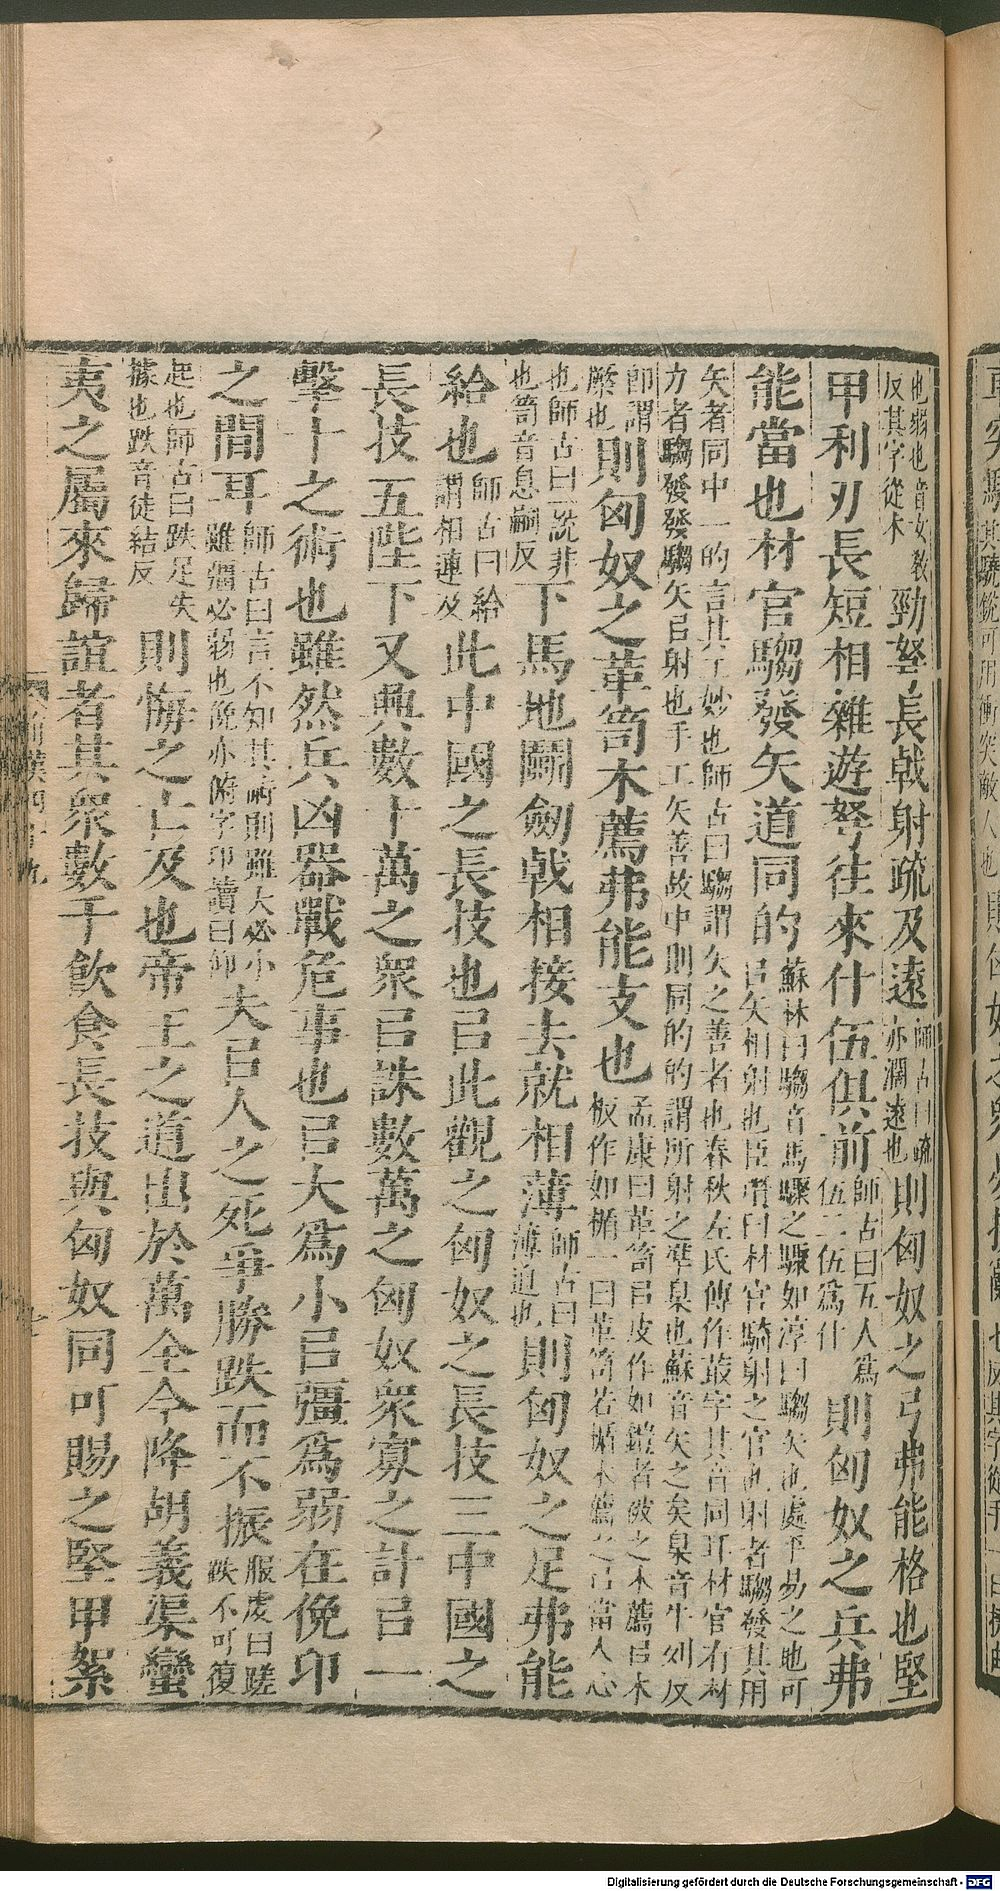 也弱也音女教反其字從木勁弩長戟射疏及遠師古曰疏亦濶遠也則匈奴之弓弗能格也堅
甲利刃長短相雜遊弩往來什伍俱前師古曰五人爲伍二伍爲什則匈奴之兵弗
能當也材官騶發矢道同的蘇林曰騶音馬驟之驟如淳曰騶矢也處平易之地可㠯矢相射也臣瓚曰材官騎射之官也射者騶發其用
矢者同中一的言其工妙也師古曰騶謂矢之善者也春秋左氏傳作菆字其音同耳材官有材力者騶發發騶矢㠯射也手工矢善故中則同的的謂所射之準臬也蘇音矢之矣臬音牛列反
即謂槷也則匈奴之革笥木薦弗能支也孟康曰革笥㠯皮作如鎧者被之木薦㠯木板作如楯一曰革笥若楯木薦之㠯當人心
也師古曰一說非也笥音息嗣反下馬地鬬劒戟相接去就相薄師古曰薄迫也則匈奴之足弗能
給也師古曰給謂相連及此中國之長技也㠯此觀之匈奴之長技三中國之
長技五陛下又興數十萬之衆㠯誅數萬之匈奴衆寡之計㠯一
擊十之術也雖然兵凶器戰危事也㠯大爲小㠯彊爲弱在俛卬
之間耳師古曰言不知其術則雖大必小雖彊必弱也俛亦俯字卬讀曰仰夫㠯人之死爭勝跌而不振服虔曰蹉跌不可復
起也師古曰跌足失據也跌音徒結反則悔之亡及也帝王之道出於萬全今降胡義渠蠻
夷之屬來歸誼者其衆數千飲食長技與匈奴同可賜之堅甲絮
Digitalisierung gefördert durch die Deutsche Forschungsgemeinschaft - DFG